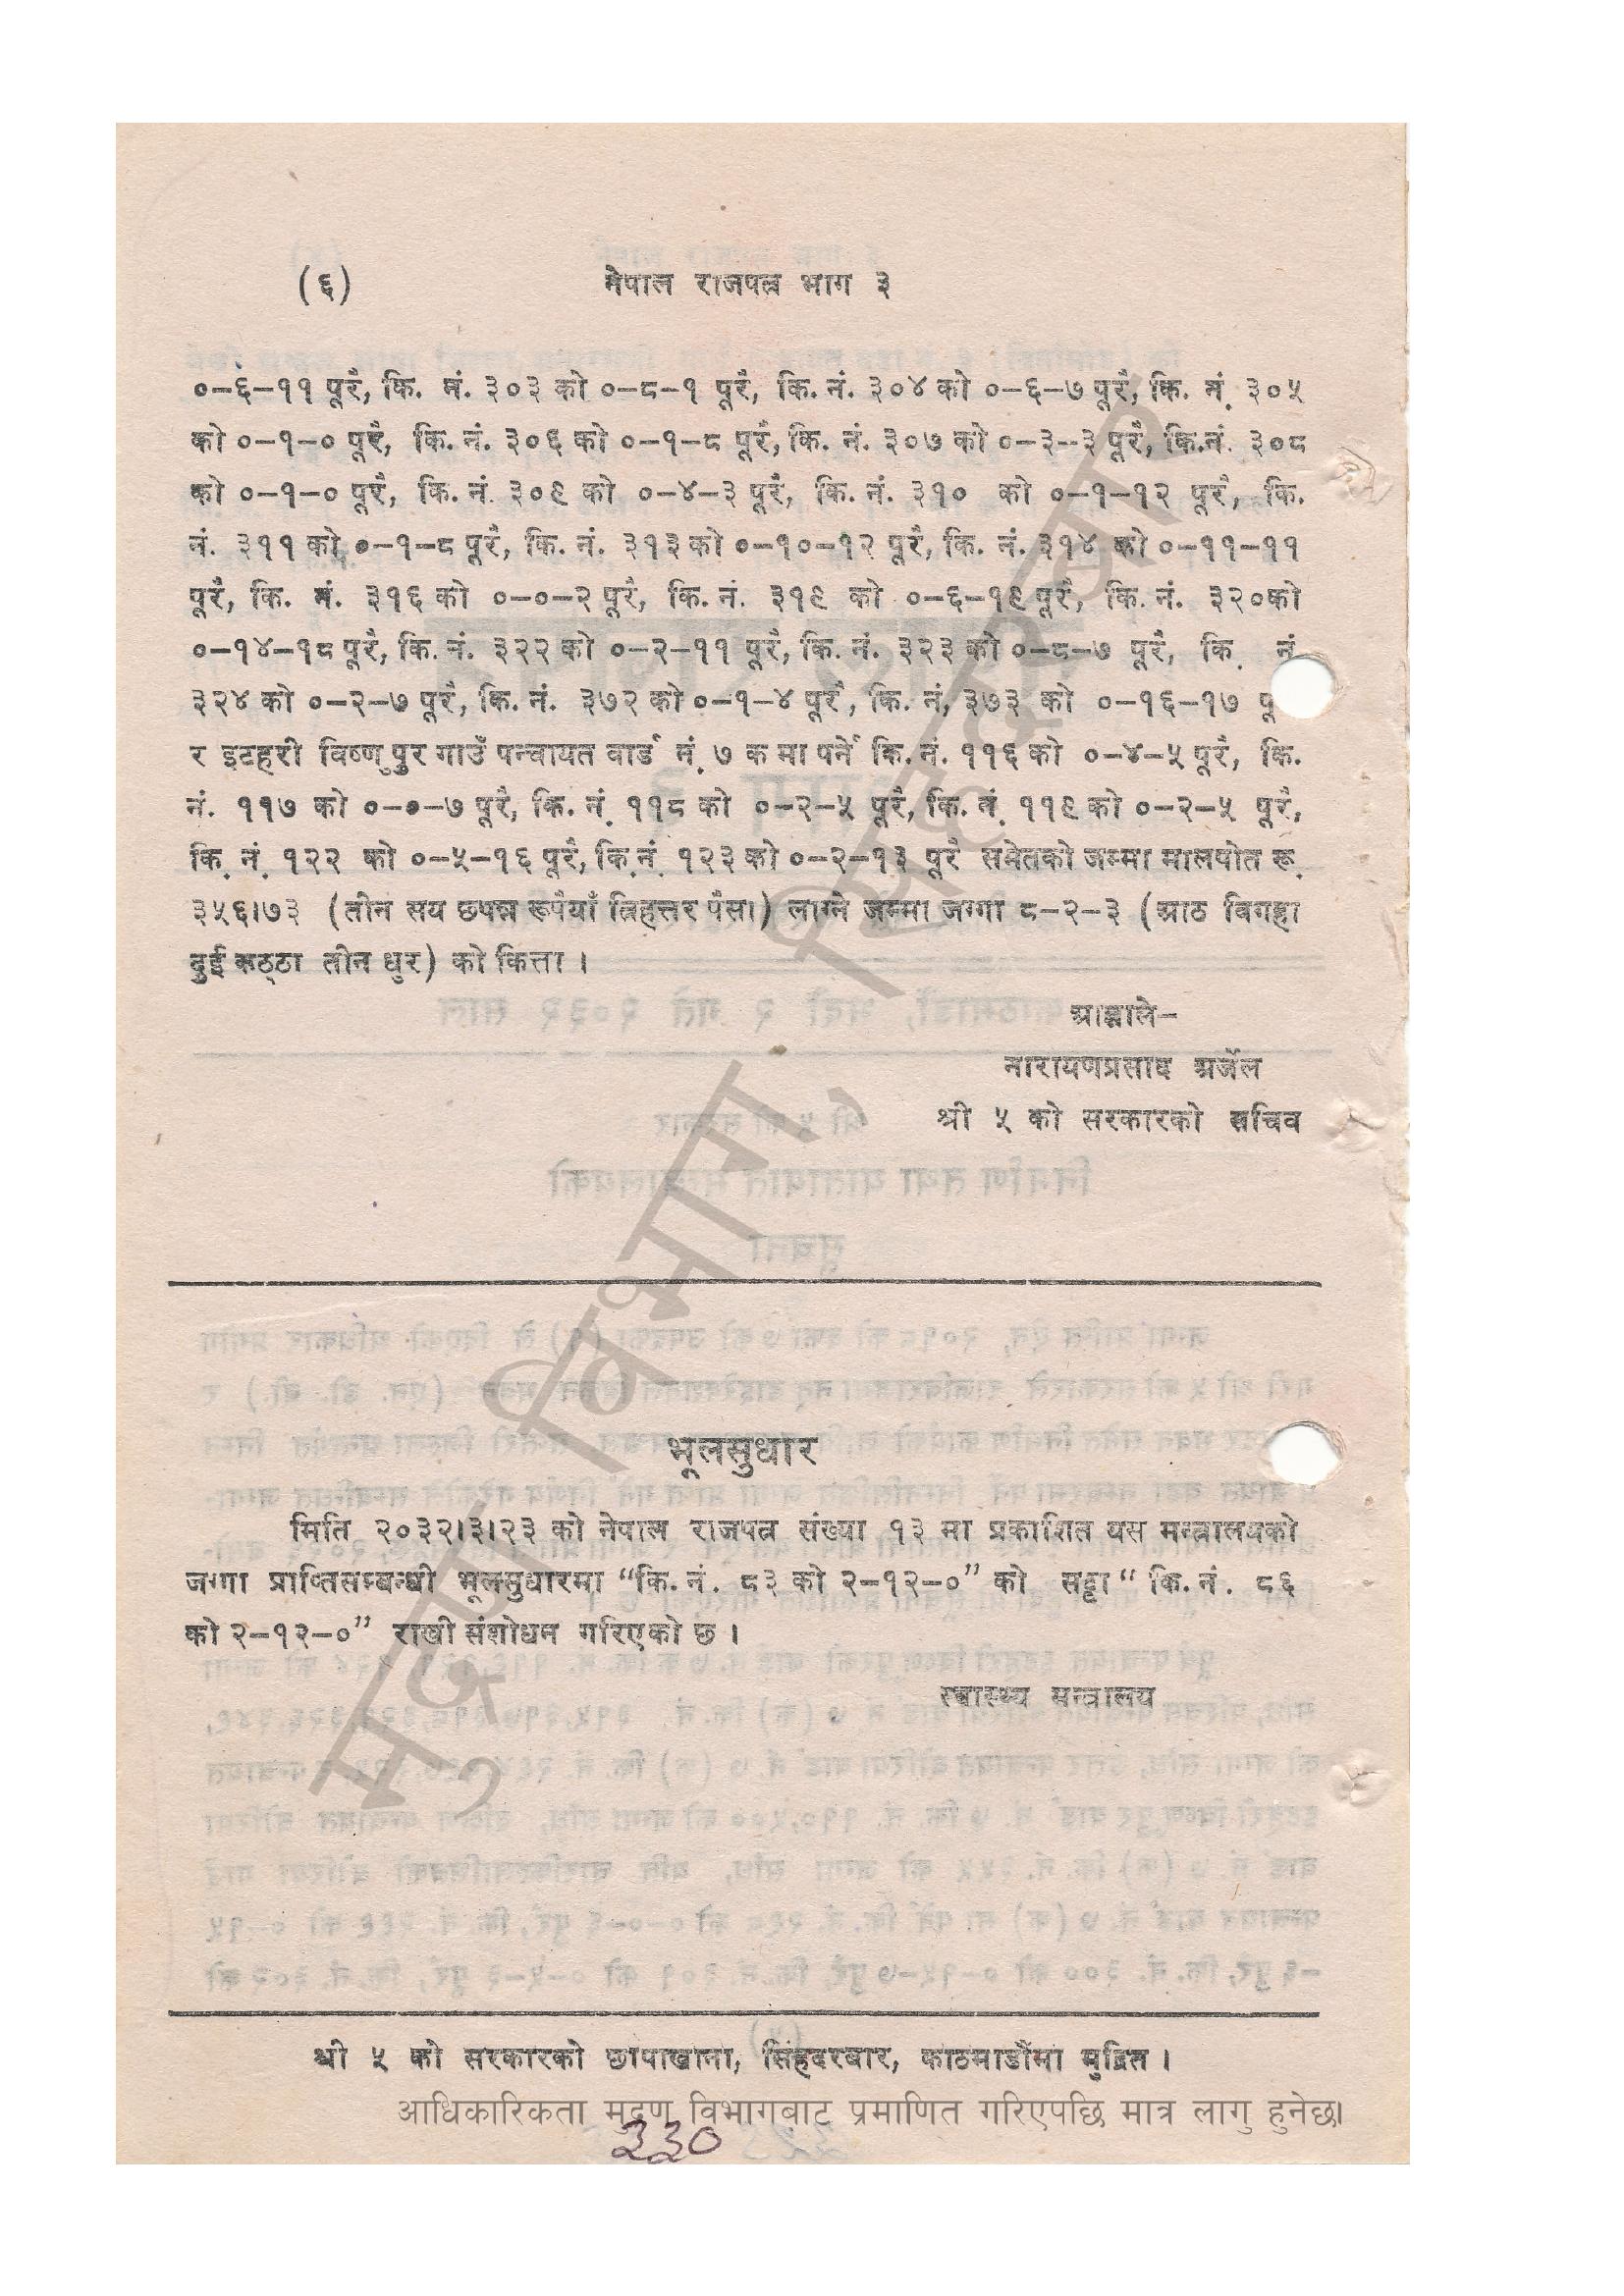 (६) नेपाल राजपत्र भाग ३
०–६–११ पूरै, कि. नं. ३०३ को ०–८–१ पूरै, कि. नं. ३०४ को ०–६–७ पूरै, कि. नं. ३०५
को ०–१–० पूरै, कि. नं. ३०६ को ०–१–८ पूरै, कि. नं. ३०७ को ०–३–३ पूरै, कि.नं. ३०८
को ०–१–० पूरै, कि. नं. ३०९ को ०–४–३ पूरै, कि. नं. ३१० को ०–१–१२ पूरै, कि.
नं. ३११ को ०–१–८ पूरै, कि. नं. ३१३ को ०–१०–१२ पूरै, कि. नं. ३१४ को ०–११–११
पूरै, कि. नं. ३१६ को ०–०–२ पूरै, कि. नं. ३१९ को ०–६–१९ पूरै, कि. नं. ३२०को
०–१४–१८ पूरै, कि. नं. ३२२ को ०–२–११ पूरै, कि. नं. ३२३ को ०–८–७ पूरै, कि. नं.
३२४ को ०–२–७ पूरै, कि. नं. ३७२ को ०–१–४ पूरै, कि. नं. ३७३ को ०–१६–१७ पू
र इटहरी विष्णुपुर गाउँ पन्चायत वार्ड नं. ७ क मा पर्ने कि. नं. ११६ को ०–४–५ पूरै, कि.
नं. ११७ को ०–०–७ पूरै, कि. नं. ११८ को ०–२–५ पूरै, कि. नं. ११९ को ०–२–५ पूरै,
कि. नं. १२२ को ०–५–१६ पूरै, कि.नं. १२३ को ०–२–१३ पूरै समेतको जम्मा मालपोत रू.
३५६।७३ (तीन सय छपन्न रूपैयाँ त्रिहत्तर पैसा) लाग्ने जम्मा जग्गा ८–२–३ (आठ विगहा
दुई कठ्ठा तीन धुर) को कित्ता ।
आज्ञाले–
नारायणप्रसाद अर्जेल
श्री ५ को सरकारको सचिव
भूलसुधार
मिति २०३२।३।२३ को नेपाल राजपत्र संख्या १३ मा प्रकाशित यस मन्त्रालयको
जग्गा प्राप्तिसम्बन्धी भूलसुधारमा “कि. नं. ८३ को २–१२–०” को सट्टा “ कि. नं. ८६
को २–१२–०” राखी संशोधन गरिएको छ ।
स्वास्थ्य मन्त्रालय
श्री ५ को सरकारको छापाखाना, सिंहदरबार, काठमाडौंमा मुद्रित ।
आधिकारिकता मुद्रण विभागबाट प्रमाणित गरिएपछि मात्र लागु हुनेछ।
३३०